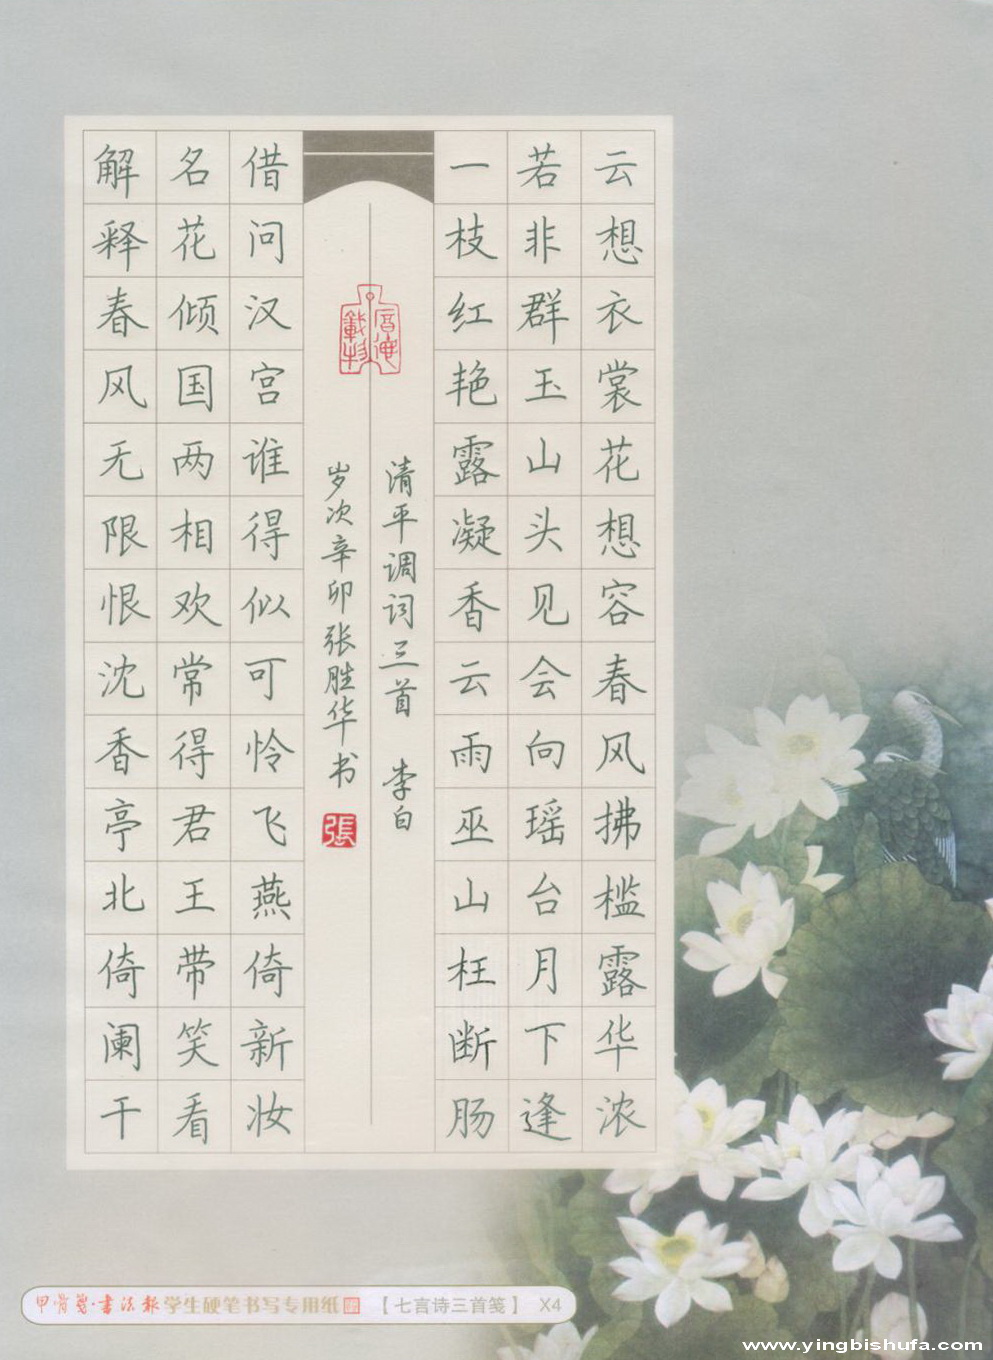 云想衣裳花想容春风拂槛露华浓
若非群玉山头见会向瑶台月下逢
一枝红艳露凝香云雨巫山枉断肠
清平调词三首 李白
岁次辛卯张胜华书
張
借问汉宫谁得似可怜飞燕倚新妆
名花倾国两相欢常得君王带笑看
解释春风无限恨沈香亭北倚阑干
书法报学生硬笔书写专用纸 【七言诗三首笺】 X4
www.yingbishufa.com